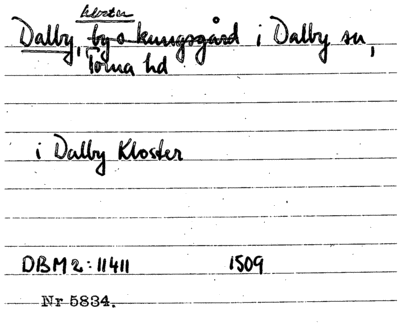 kloster
Dalby, by o kungsgård i Dalby sn,
Torna hd
i Dalby Kloster
DBM 2:11411 1509
Nr 5834.